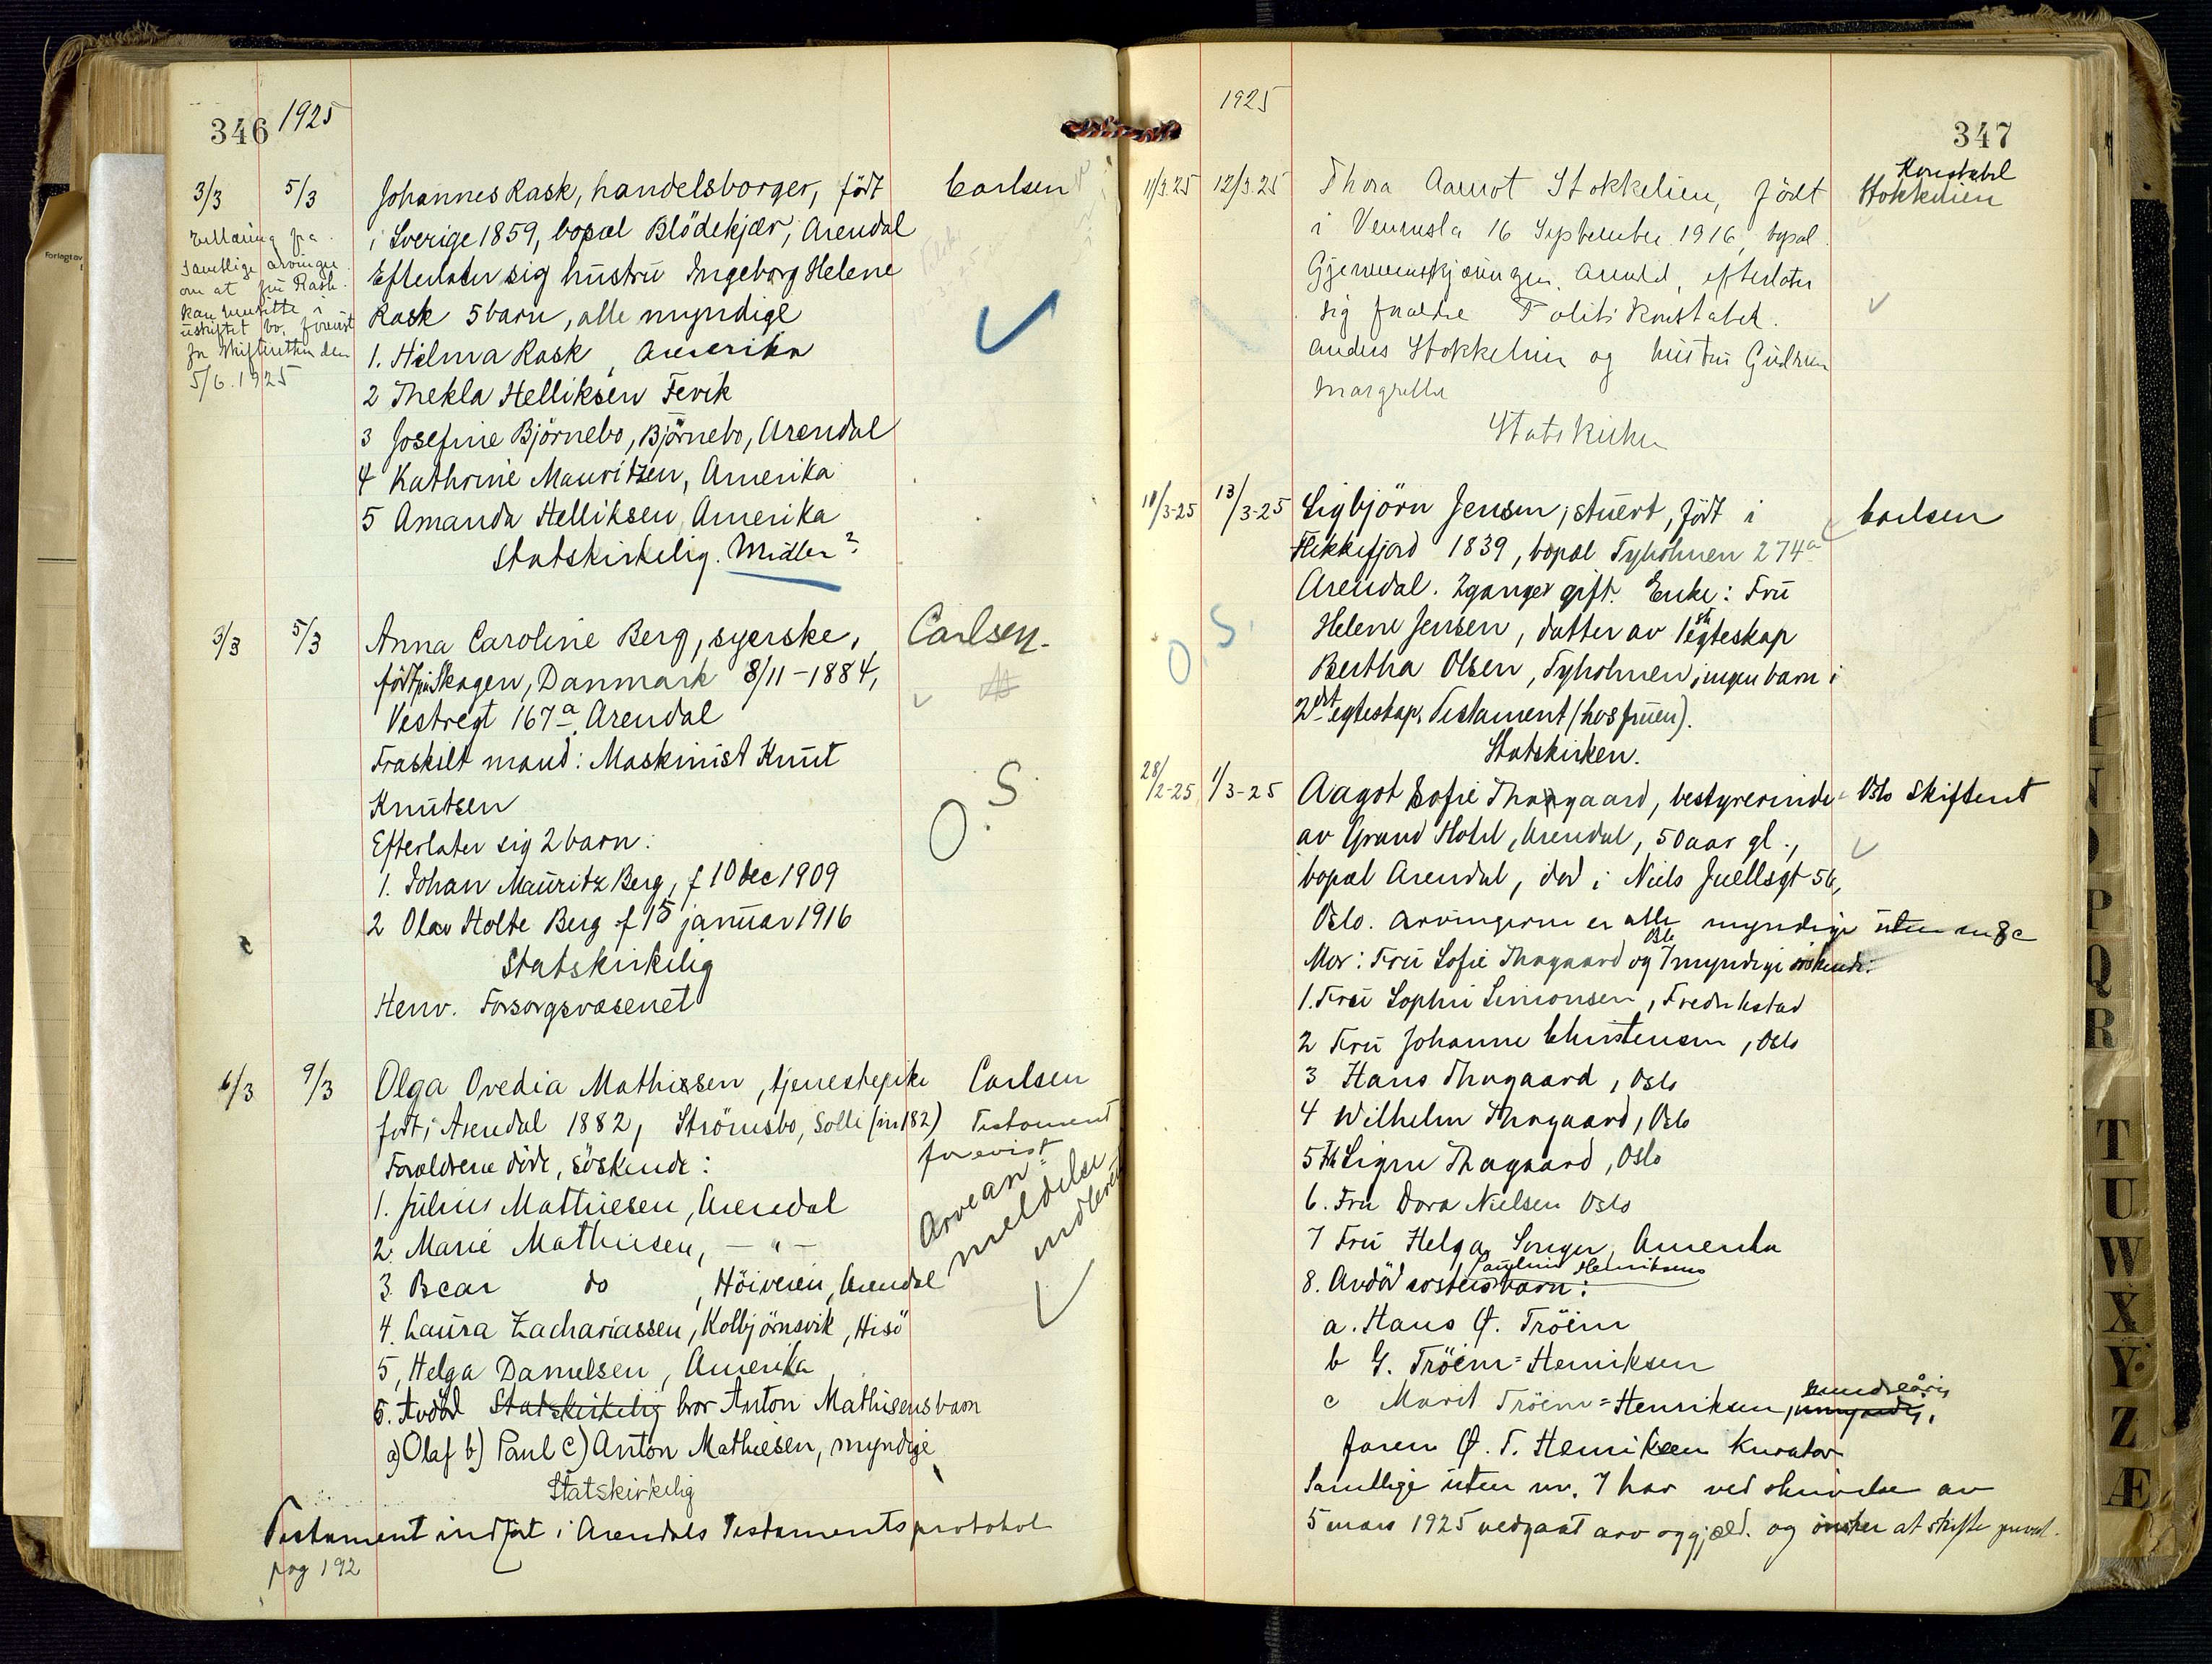 346 1925
3/3 5/3 Johannes Rask, handelsborger, født Carlsen
i Sverige 1859, bopæl Blödekjær, Arendal
Efterlater sig hustru Ingeborg Helene
Rask 5 barn, alle myndige
1. Hilma Rask, Amerika
2 Thekla Helliksen Fevik
3 Josefine Björnebo, Björnebo, Arendal
4 Kathrine Mauritzen, Amerika
5 Amanda Helliksen, Amerika
Statskirkelig. Midler?
Erklæring fra
samtlige arvinger
om at fru Rask
kan hensitte i
uskiftet bo, forevist
for skifteretten den
5/6.1925
3/3 5/3 Anna Caroline Berg, syerske, Carlsen.
født på Skagen, Danmark 8/11-1884,
Vestregt 167a Arendal
Fraskilt mand: Maskinist Knut
Knutsen
O.S.
Efterlater sig 2 barn:
1. Johan Mauritz Berg, f 10 dec 1909
2 Olav Holte Berg f 15 januar 1916
Statskirkelig
Henv. Forsorgsvæsenet
6/3 9/3 Olga Ovedia Mathissen, tjenestepike Carlsen
født i Arendal 1882, Strömsbo, Solli (nr 182) Testament
Forældrene döde, söskende: forevist
1. Julius Mathiesen, Arendal
2. Marie Mathiesen, — " —
3. Bcar do, Höiveien, Arendal
4. Laura Zachariassen, Kolbjörnsvik, Hisö
5, Helga Danielsen, Amerika
6. Avdöd Statskirkelig bror Anton Mathisens barn
a) Olaf b) Paul c) Anton Mathiesen, myndige
Statskirkelig
Arvean=
meldelse
indberet
Testament indfört i Arendals Testamentsprotokol
pag 192
1925 347
11/3.25 12/3.25 Thora Aamot Stokkelien, født Konstabel
i Vennesla 16 September 1916, bopæl Stokkelien
Arendal, efterlater
sig forældre Politikonstabel
Anders Stokkelien og hustru Gudrun
Margrethe
Statskirken
11/3-25 13/3-25 Sigbjörn Jensen, stuert, född i Carlsen
Flekkefjord 1839, bopæl Tyholmen 274a
Arendal. 2ganger gift. Enke: Fru
Helene Jensen, datter av 1ste egteskap
O.S.
Bertha Olsen, Tyholmen, ingen barn i
2det egteskap. Testament (hos fruen).
Statskirken.
28/2-25 1/3-25 Aagot Sofie Thagaard, bestyrerinde Oslo Skifteret
av Grand Hotel, Arendal, 50 aar gl.,
bopæl Arendal, död i Niels Juellsgt 56,
Oslo. Arvingerne er alle myndige uten nr 8c
Mor: Fru Sofie Thagaard Oslo og 7 myndige söskende:
1. Fru Sophie Simonsen, Fredrikstad
2 Fru Johanne Christensen, Oslo
3 Hans Thagaard, Oslo
4 Wilhelm Thagaard, Oslo
5 Signe Thagaard, Oslo
6. Fru Dora Nielsen Oslo
7 Fru Helga Senger, Amerika
8. Avdöd sösters Pauline Henriksens barn:
a. Hans Ø. Tröim
b G. Tröim=Henriksen
c Marit Tröim=Henriksen, umyndig, mindreårig
faren Ø. T. Henriksen kurator
Samtlige uten nr. 7 har ved skrivelse av
5 mars 1925 vedgaat arv og gjæld. og önsker at skifte privat.
T
U
W
X
Y
Z
Æ
N
O
P
Q
R